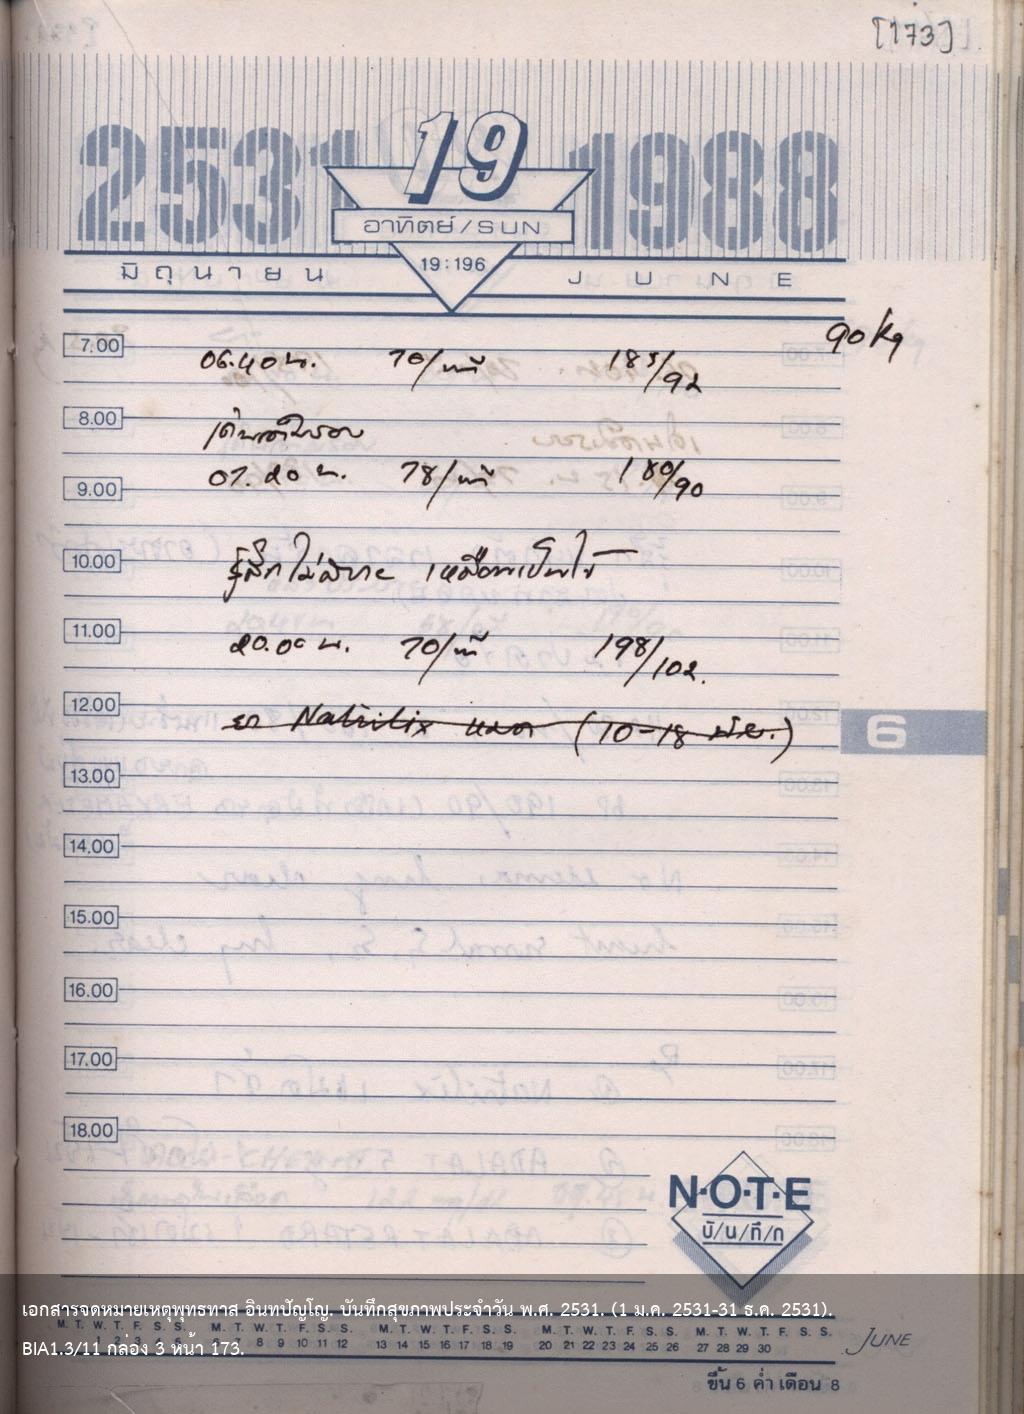 [173]
2531 19 1988
อาทิตย์/SUN
19:196
มิถุนายน JUNE
90 kg
7.00
06.40 น. 70/นาที 185/92
8.00
เดินเต็มรอบ
07.20 น. 78/นาที 180/90
9.00
10.00
รู้สึกไม่สบาย เหมือนเป็นไข้
11.00
20.00 น. 70/นาที 198/102.
12.00
ยา Natrilix หมด (10-18 มิย.)
6
13.00
14.00
15.00
16.00
17.00
18.00
N·O·T·E
บั/น/ทึ/ก
เอกสารจดหมายเหตุพุทธทาส อินทปัญโญ. บันทึกสุขภาพประจำวัน พ.ศ. 2531. (1 ม.ค. 2531-31 ธ.ค. 2531).
M. T. W. T. F. S. S. M. T. W. T. F. S. S. M. T. W. T. F. S. S. M. T. W. T. F. S. S. M. T. W. T. F. S. S.
1 2 3 4 5 6 7 8 9 10 11 12 13 14 15 16 17 18 19 20 21 22 23 24 25 26 27 28 29 30
JUNE
BIA1.3/11 กล่อง 3 หน้า 173.
ขึ้น 6 ค่ำ เดือน 8